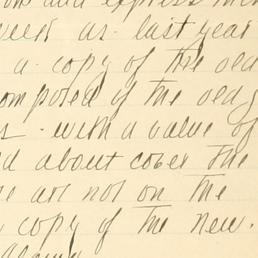 and express
week as last year
a copy of the old
composed of the old
with a value of
about cover the
are not on the
copy of the new.